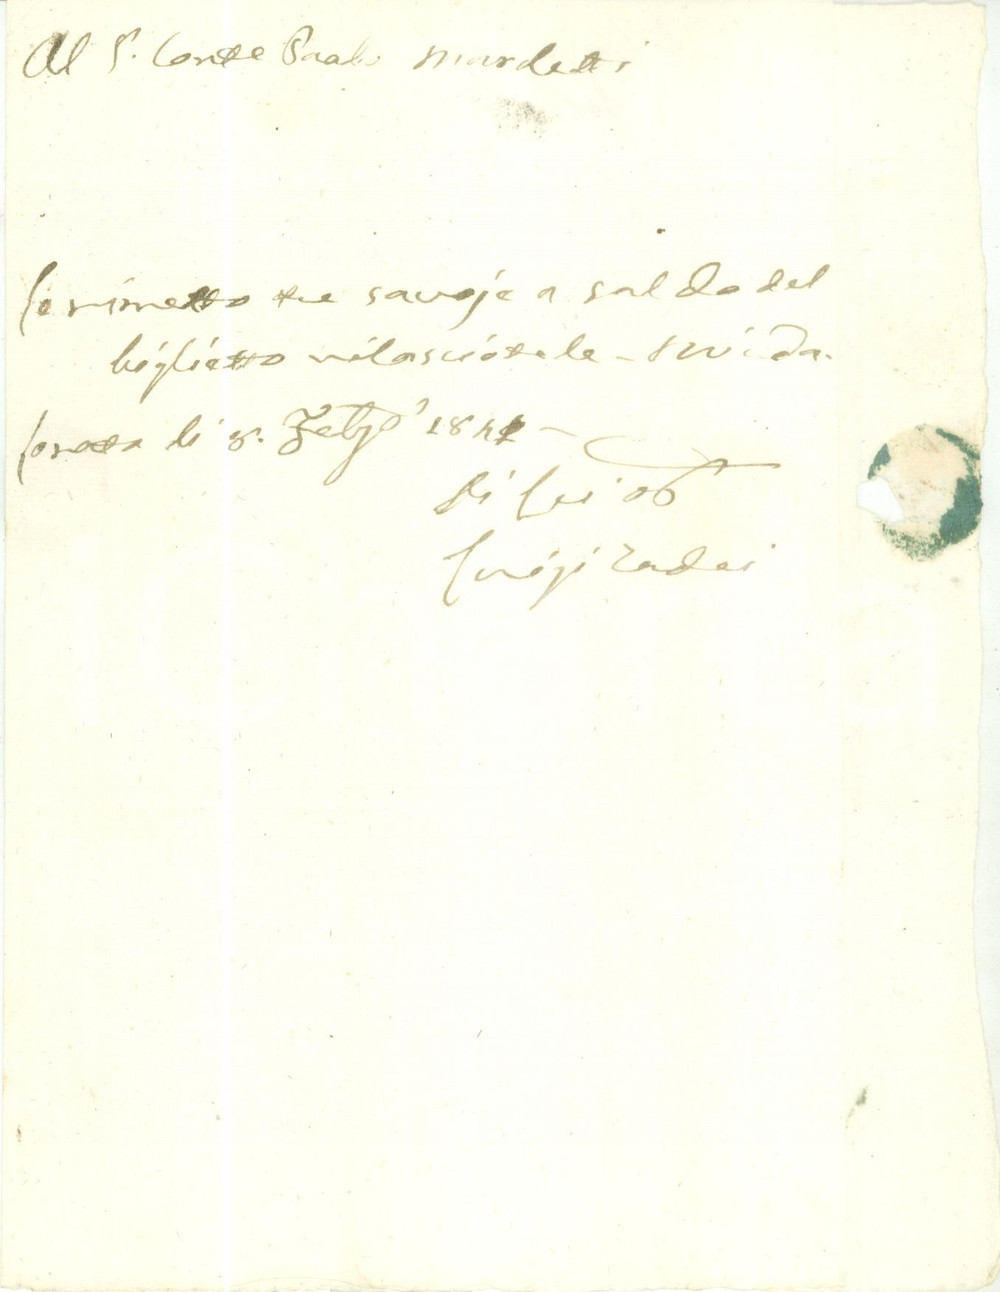 Al S. Conte Paoli
Le rimetto tre savoje a saldo del
biglietto rilasciatole
Loreto li 8. Febb.o 184
Di Lei
Luigi Taddei